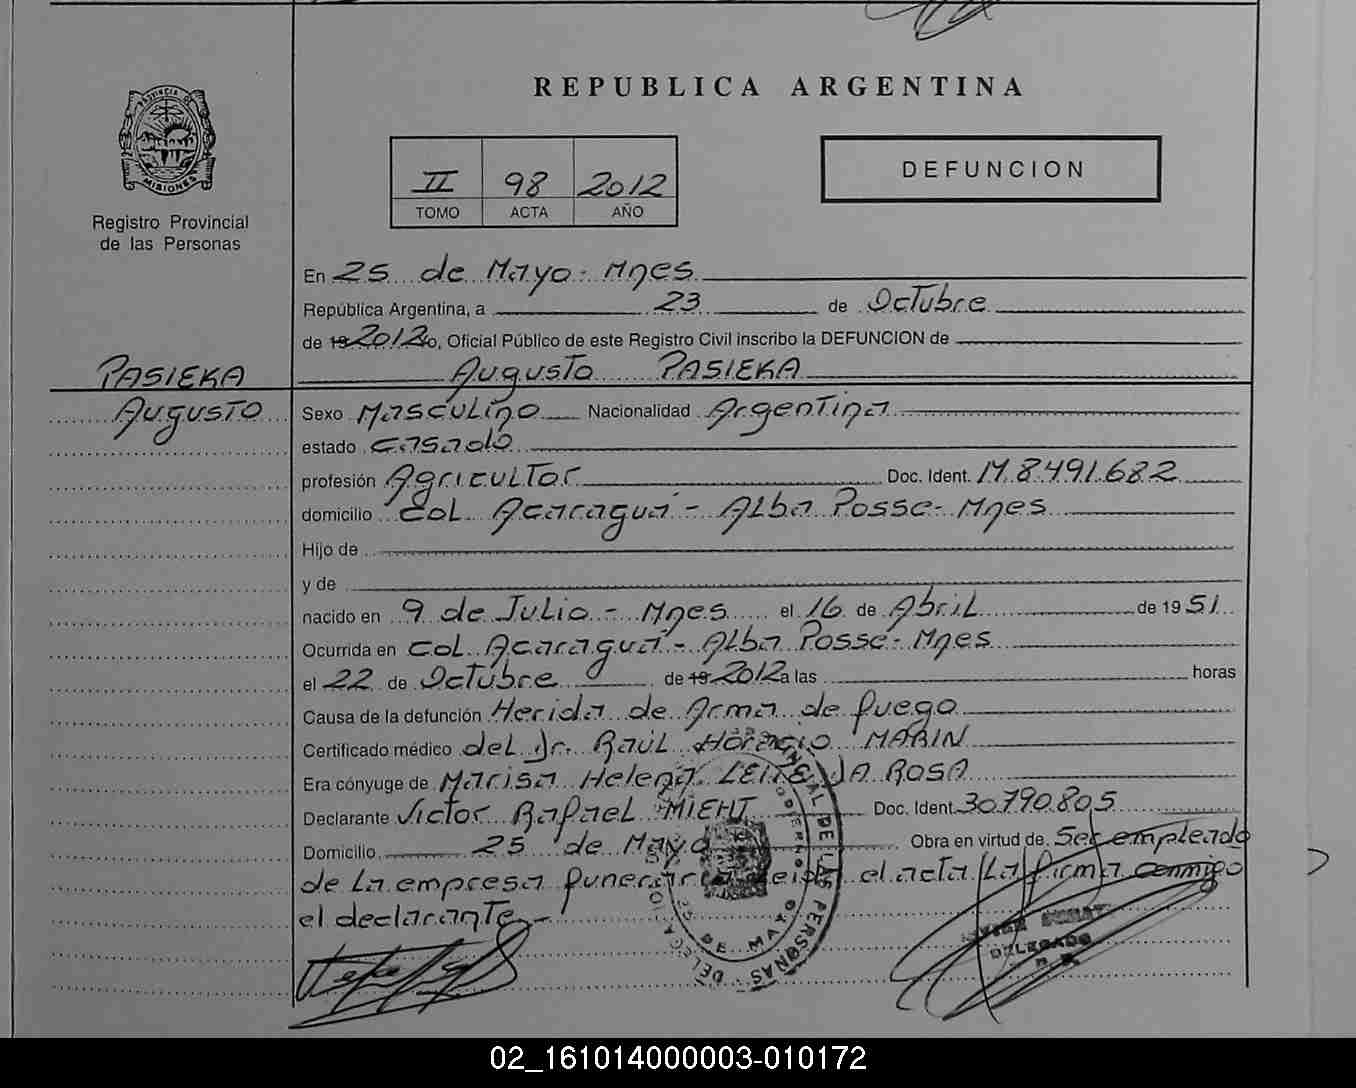 REPUBLICA ARGENTINA
PROVINCIA DE
MISIONES
Registro Provincial
de las Personas
II 98 2012
TOMO ACTA AÑO
DEFUNCION
En 25 de Mayo - Mnes
República Argentina, a 23 de Octubre
de 19 2012 yo, Oficial Público de este Registro Civil inscribo la DEFUNCION de
PASIEKA
Augusto PASIEKA
Augusto
Sexo Masculino Nacionalidad Argentina
estado casado
profesión Agricultor Doc. Ident. M.8.491.682
domicilio Col. Acaragua - Alba Posse - Mnes
Hijo de
y de
nacido en 9 de Julio - Mnes el 16 de Abril de 1951
Ocurrida en Col. Acaragua - Alba Posse - Mnes
el 22 de Octubre de 19 2012 a las horas
Causa de la defunción Herida de Arma de fuego
Certificado médico del Dr. Raúl Horacio MARIN
Era cónyuge de Marisa Helena LEITE DA ROSA
Declarante Victor Rafael MIEHT Doc. Ident. 30.790.805
Domicilio 25 de Mayo Obra en virtud de Ser empleado
de la empresa funeraria Leida el acta La firma conmigo
el declarante -
DE LAS PERSONAS
25 DE MAYO
DELEGADO
02_161014000003-010172